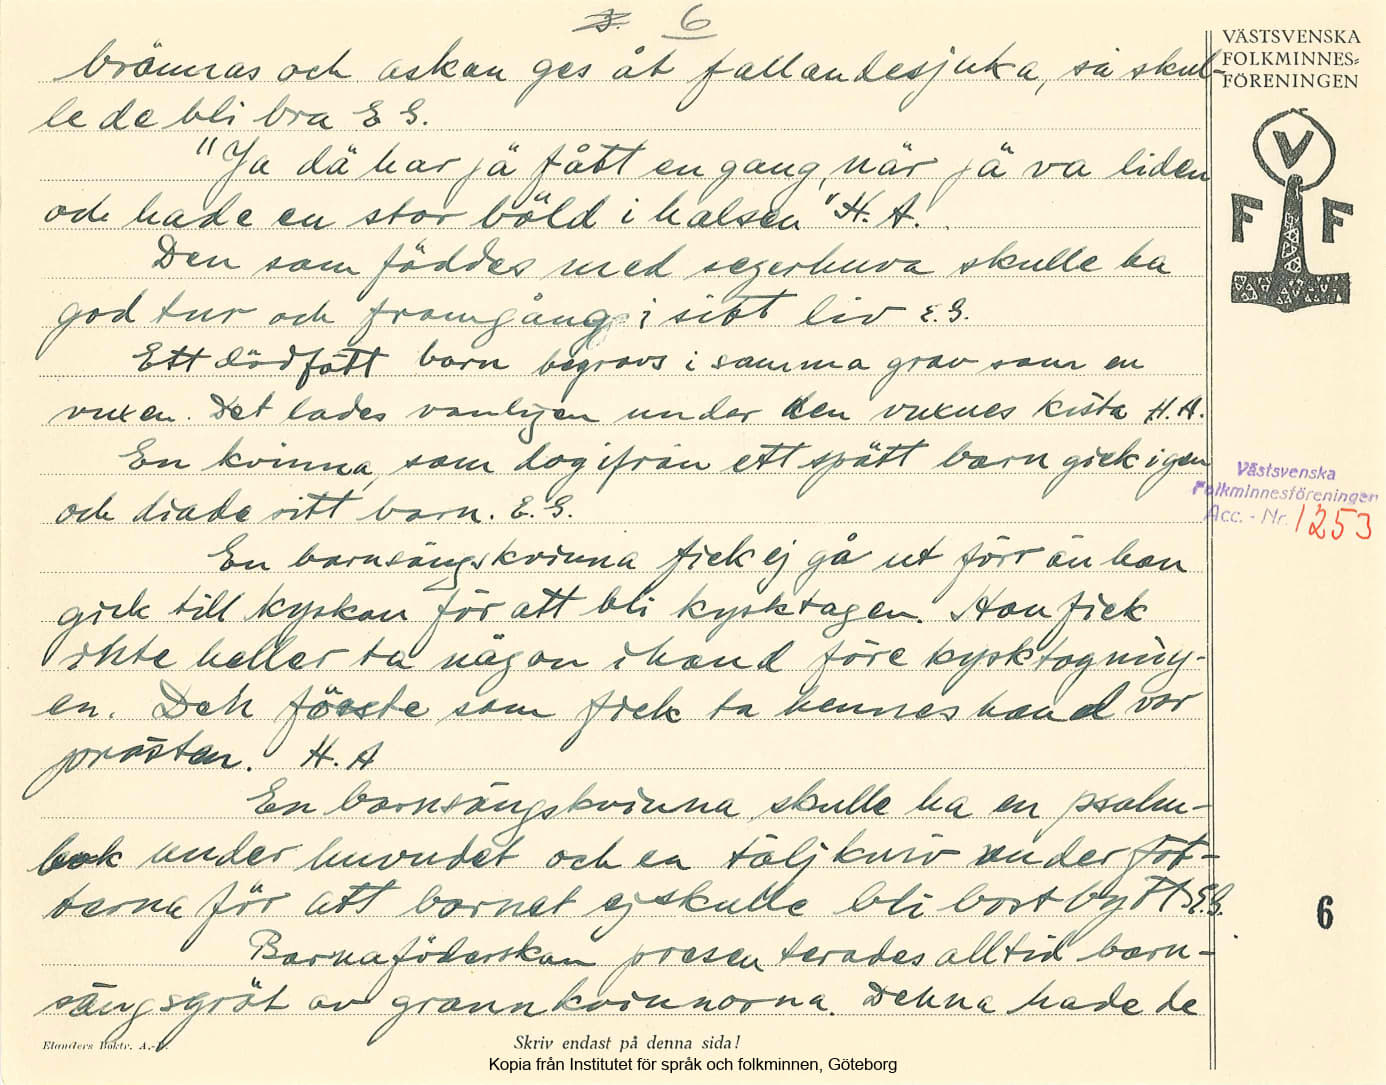 6
brännas och askan ges åt fallandesjuka, så skul-
le de bli bra E G.
"Ja dä har jä fått en gang, när jä va liden
och hade en stor böld i halsen" H. A.
Den som föddes med segerhuva skulle ha
god tur och framgång i sitt liv E. G.
Ett dödfött barn begravs i samma grav som en
vuxen. Det lades vanligen under den vuxnes kista H. A.
En kvinna, som dog ifrån ett spätt barn gick igen
och diade sitt barn. E. G.
En barnsängskvinna fick ej gå ut förr än hon
gick till kyrkan för att bli kyrktagen. Hon fick
inte heller ta någon i hand före kyrktagning-
en. Den förste som fick ta hennes hand var
prästen. H. A
En barnsängskvinna skulle ha en psalm-
bok under huvudet och en täljkniv under föt-
terna för att barnet ej skulle bli bortbytt E. G.
Barnaföderskan presenterades alltid barn-
sängsgröt av grannkvinnorna. Denna hade de
VÄSTSVENSKA
FOLKMINNES-
FÖRENINGEN
V
F F
Västsvenska
Folkminnesföreningen
Acc. - Nr. 1253
6
Elanders Boktr. A.-B.
Skriv endast på denna sida!
Kopia från Institutet för språk och folkminnen, Göteborg